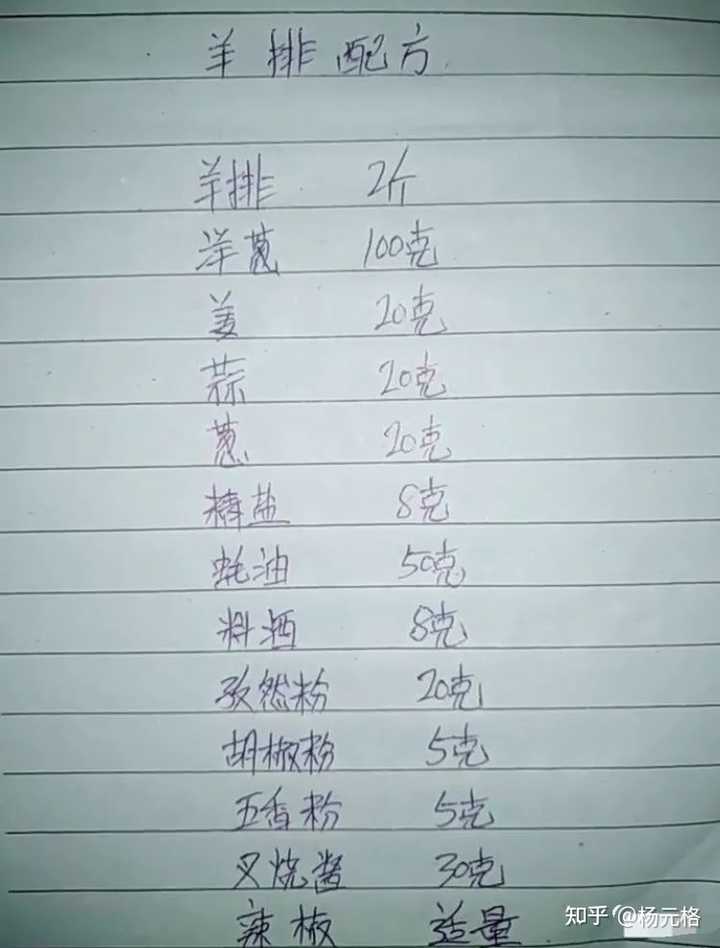 羊排配方
羊排 2斤
洋葱 100克
姜 20克
蒜 20克
葱 20克
椿盐 8克
蚝油 50克
料酒 8克
孜然粉 20克
胡椒粉 5克
五香粉 5克
叉烧酱 30克
辣椒 适量
知乎 @杨元格